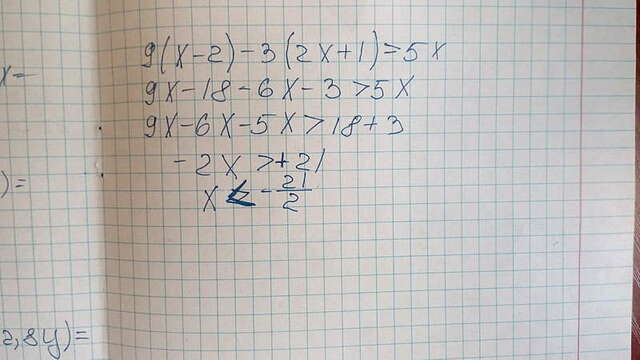 9(x-2)-3(2x+1)=5x
x=
9x-18-6x-3>5x
9x-6x-5x>18+3
-2x>+21
)=
x<-21/2
2,8y)=